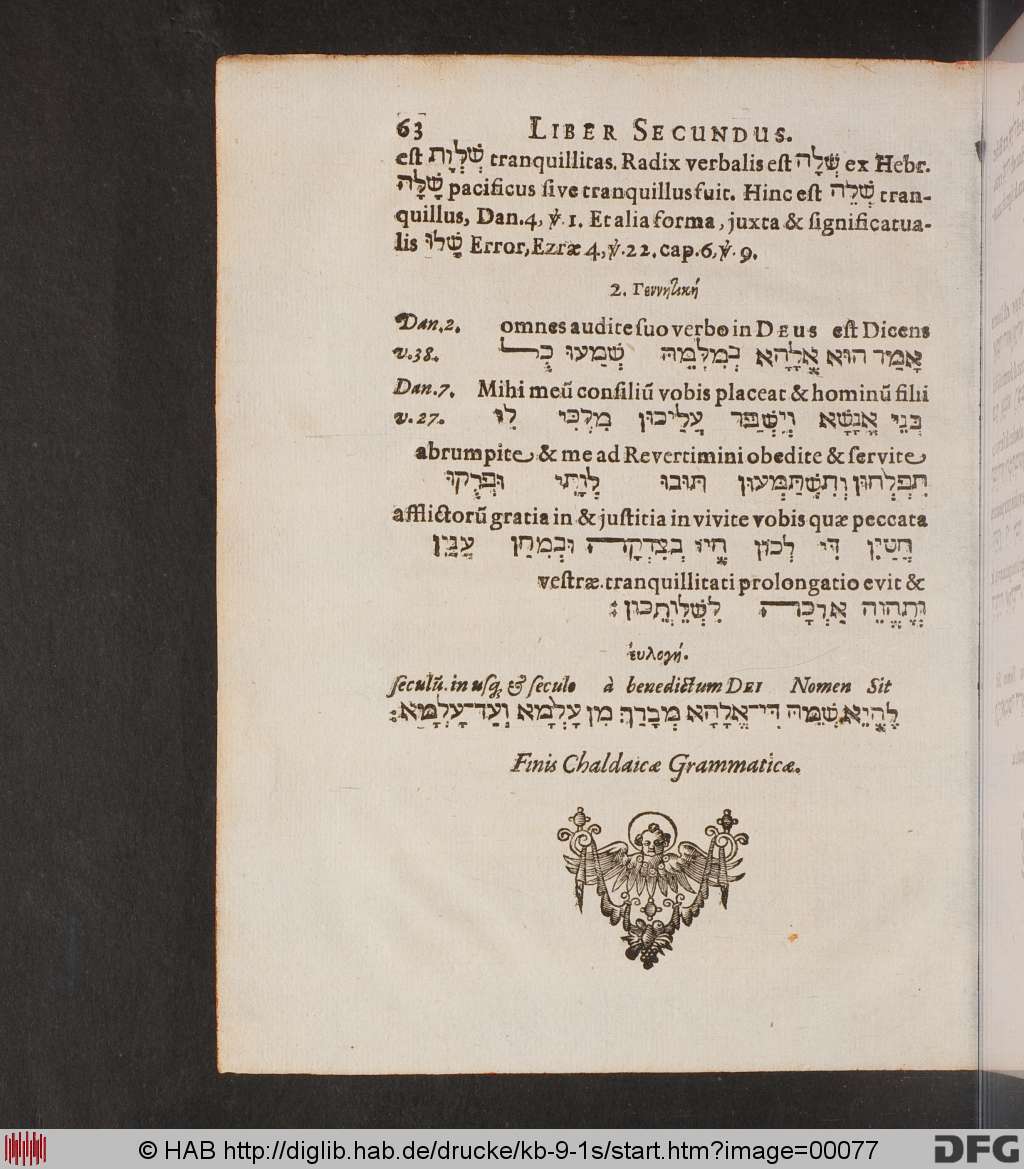 63 LIBER SECUNDUS.
est שְׁלֵוָת tranquillitas. Radix verbalis est שְׁלָה ex Hebr.
שָׁלָה pacificus sive tranquillus fuit. Hinc est שְׁלֵה tran-
quillus, Dan. 4, ℣. 1. Et alia forma, juxta & significatua-
lis שָׁלוּ Error, Ezræ 4, ℣. 22. cap. 6, ℣. 9.
2. Γεννητικὴ
Dan. 2. omnes audite suo verbo in DEUS est Dicens
v. 38. אָמַר הוּא אֱלָהָא בְּמִלְּמֵהּ שְׁמַעוּ כָּל
Dan. 7. Mihi meũ consiliũ vobis placeat & hominũ filii
v. 27. בְּנֵי אֱנָשָׁא וְיִשְׁפַּר עֲלַיכוֹן מִלְכִּי לִי
abrumpite & me ad Revertimini obedite & servite
תִפְלְחוּן וְתִשְׁתַּמְּעוּן תּוּבוּ לְוָתִי וּפְרֻקוּ
afflictorũ gratia in & justitia in vivite vobis quæ peccata
חֲטַיִן דִּי לְכוֹן חֱיוּ בְּצִדְקָה וּבְמִחַן עֲנָיִן
vestræ. tranquillitati prolongatio evit &
וְתֶהֱוֵה אַרְכָה לִשְׁלֵוְתְכוֹן׃
ἐυλογή.
seculũ. in usq; & seculo à benedictum DEI Nomen Sit
לֶהֱוֵא שְׁמֵהּ דִּי־אֱלָהָא מְבָרַךְ מִן עָלְמָא וְעַד־עָלְמָא׃
Finis Chaldaicæ Grammaticæ.
© HAB http://diglib.hab.de/drucke/kb-9-1s/start.htm?image=00077
DFG